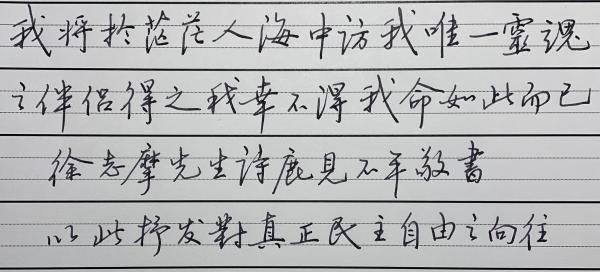 我将於茫茫人海中访我唯一靈魂
之伴侣得之我幸不得我命如此而已
徐志摩先生诗鹿見不平敬書
以此抒发對真正民主自由之向往